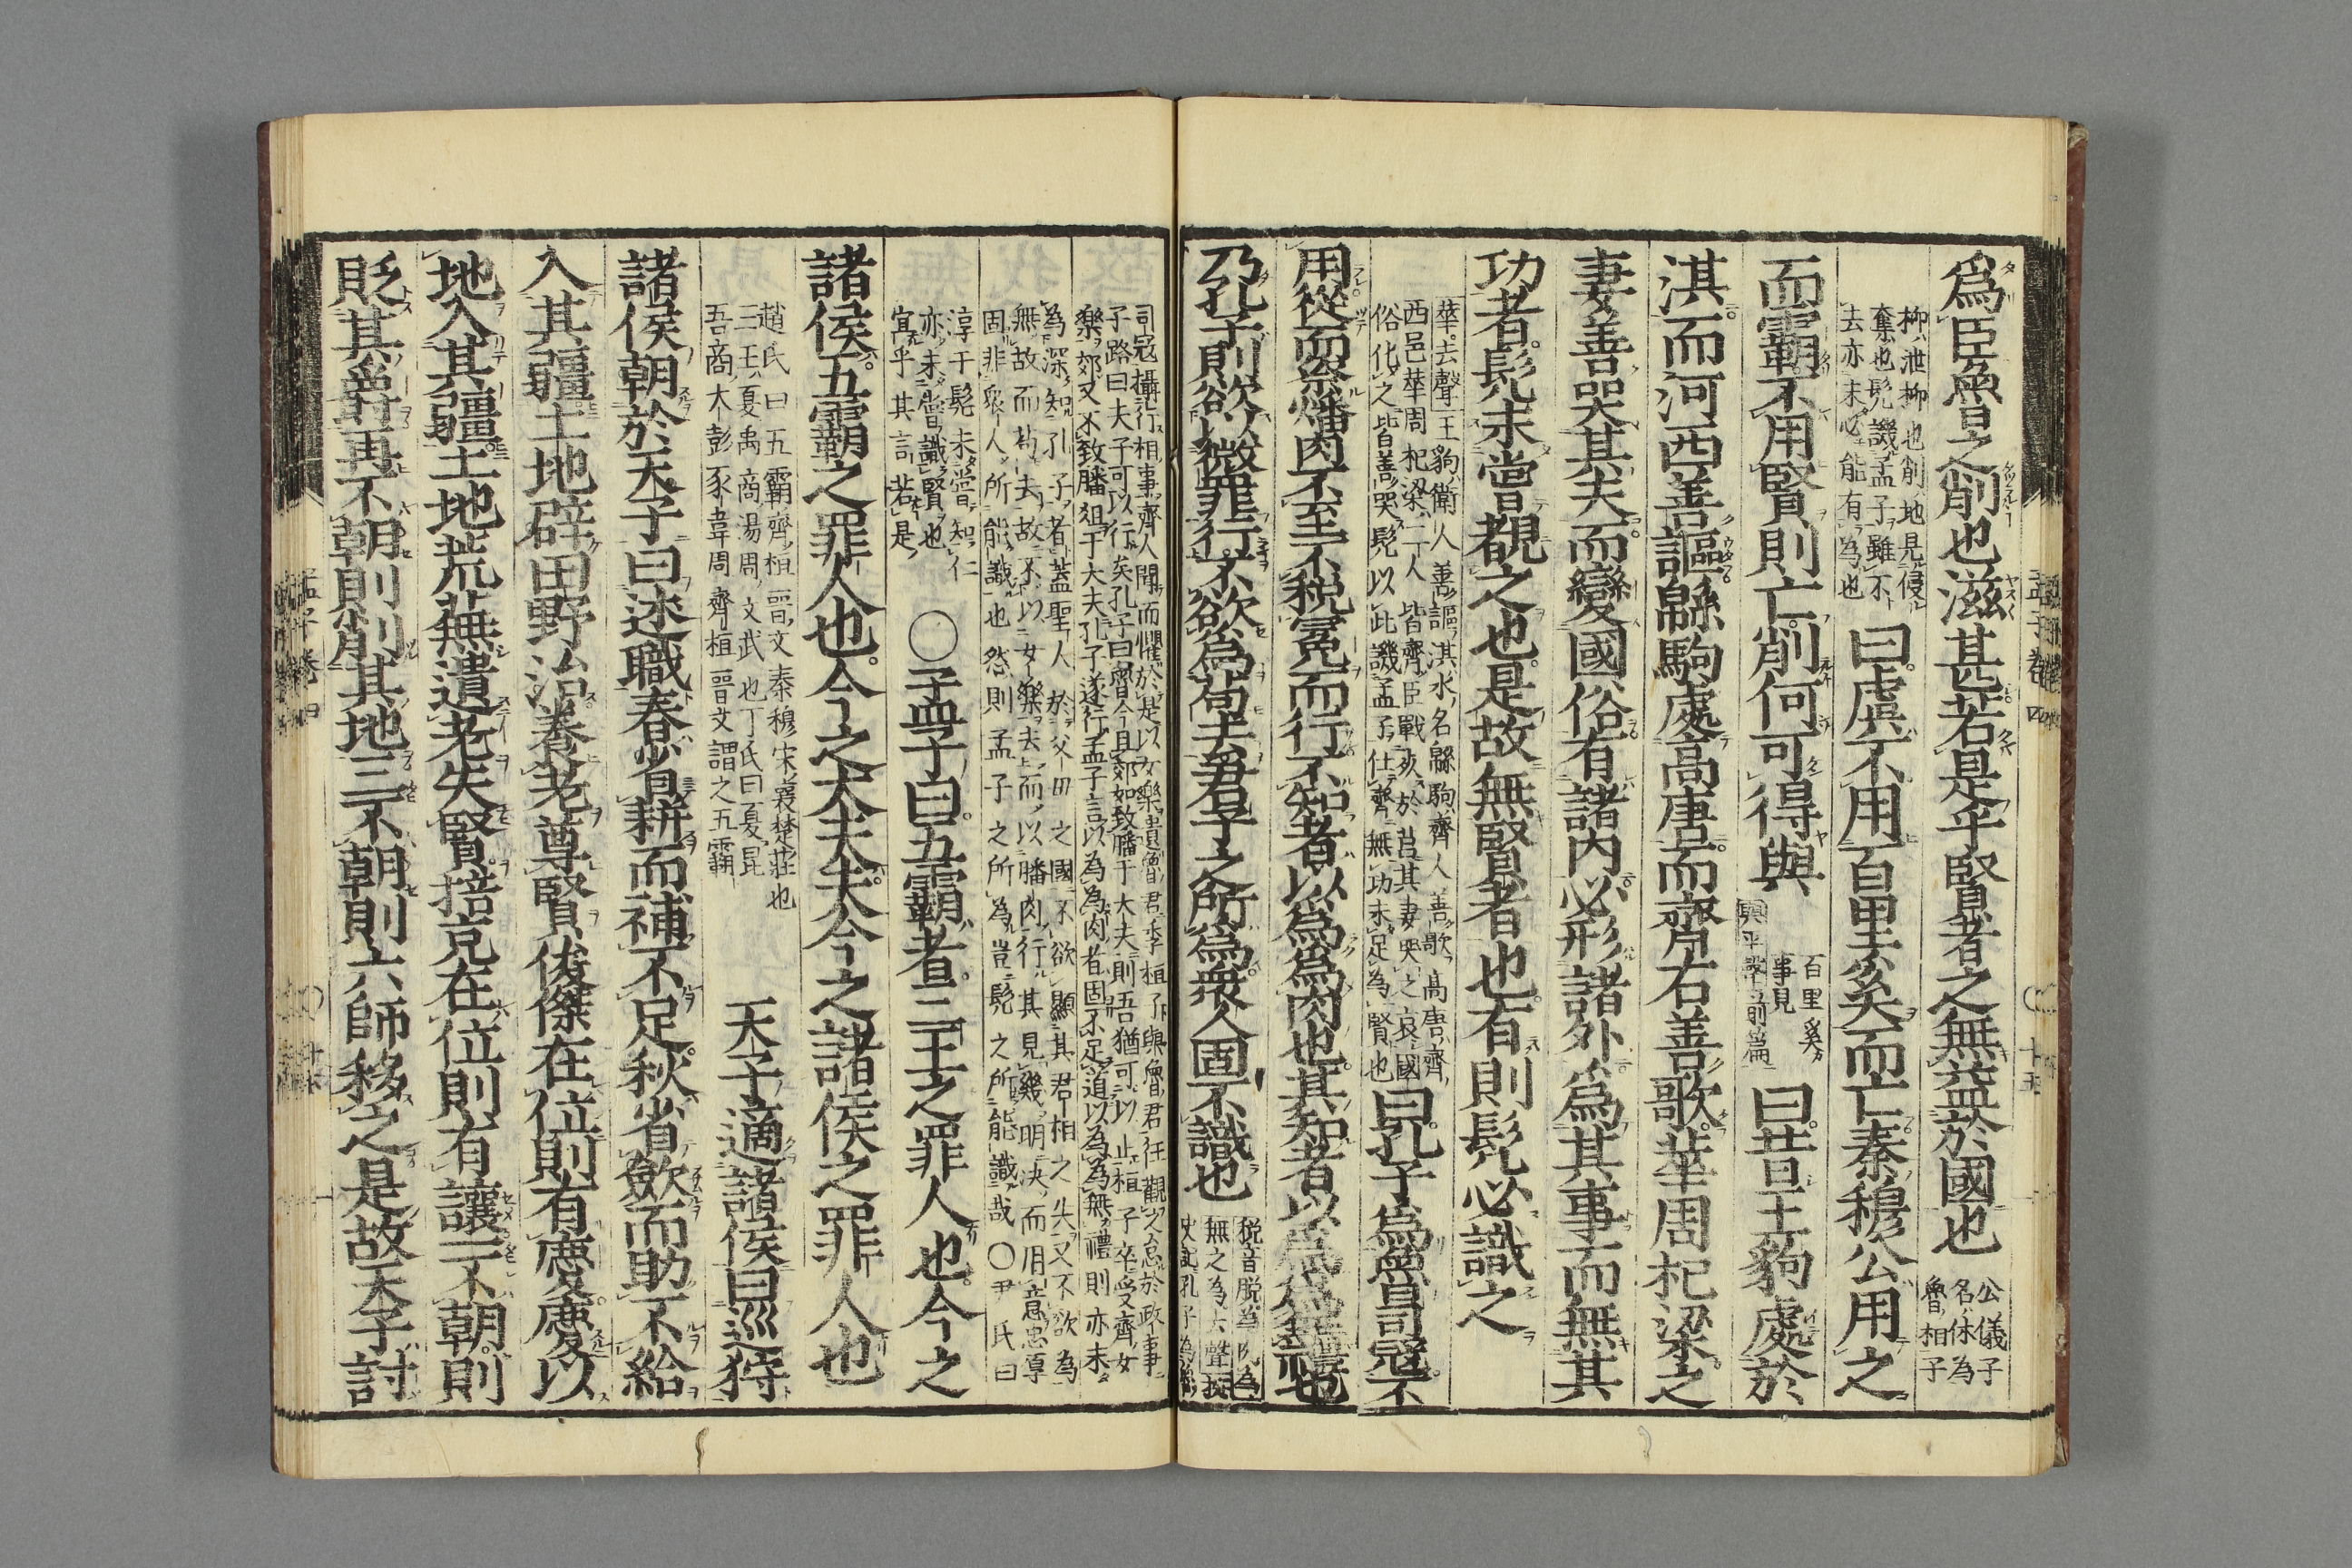 爲臣魯之削也滋甚若是乎賢者之無益於國也
公儀子
名休為
魯相子
柳泄柳也削地見侵
奪也髡譏孟子雖不
去亦未必能有為也
曰虞不用百里奚而亡秦穆公用之
而霸不用賢則亡削何可得與
與平聲
百里奚
事見
前篇
曰昔王豹處於
淇而河西善謳緜駒處高唐而齊右善歌華周杞梁之
妻善哭其夫而變國俗有諸內必形諸外爲其事而無其
功者髡未嘗覩之也是故無賢者也有則髡必識之
華去聲王豹衛人善謳淇水名緜駒齊人善歌高唐齊
西邑華周杞梁二人皆齊臣戰死於莒其妻哭之哀國
俗化之皆善哭髡以此譏孟子仕齊無功未足為賢也
曰孔子爲魯司寇不
用從而祭燔肉不至不稅冕而行不知者以爲爲肉也其知者以爲爲無禮也
乃孔子則欲以微罪行不欲爲苟去君子之所爲衆人固不識也
稅音脫為肉為
無之為去聲
史記孔子為魯
司寇攝行相事齊人聞而懼於是以女樂遺魯君季桓子與魯君往觀之怠於政事
子路曰夫子可以行矣孔子曰魯今且郊如致膰于大夫則吾猶可以止桓子卒受齊女
樂郊又不致膰俎于大夫孔子遂行孟子言以為為肉者固不足道以為為無禮則亦未
為深知孔子者蓋聖人於父母之國不欲顯其君相之失又不欲為
無故而苟去故不以女樂去而以膰肉行其見幾明決而用意忠厚
固非衆人所能識也然則孟子之所為豈髡之所能識哉〇尹氏曰
淳于髡未嘗知仁
亦未嘗識賢也
宜乎其言若是
〇孟子曰五霸者三王之罪人也今之
諸侯五霸之罪人也今之大夫今之諸侯之罪人也
趙氏曰五霸齊桓晉文秦穆宋襄楚莊也
三王夏禹商湯周文武也丁氏曰夏昆
吾商大彭豕韋周齊桓晉文謂之五霸
天子適諸侯曰巡狩
諸侯朝於天子曰述職春省耕而補不足秋省斂而助不給
入其疆土地辟田野治養老尊賢俊傑在位則有慶慶以
地入其疆土地荒蕪遺老失賢掊克在位則有讓一不朝則
貶其爵再不朝則削其地三不朝則六師移之是故天子討